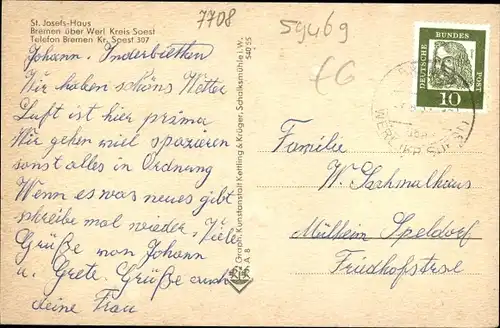 7708
59469
€6
St. Josefs-Haus
Bremen über Werl Kreis Soest
Telefon Bremen Kr. Soest 307
Johann.
Wir haben schöns Wetter
Luft ist hier prima
Wir gehen viel spazieren
sonst alles in Ordnung
Wenn es was neues gibt
schreibe mal wieder. Viele
Grüße von Johann
u. Grete. Grüße auch
deine Frau
Graph. Kunstanstalt Kettling & Krüger, Schalksmühle i. W.
540 55
DEUTSCHE BUNDES POST
10
Familie
W.
Mülheim Speldorf
Friedhofstrase